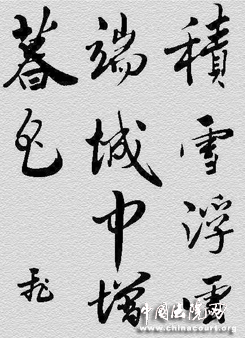 積雪浮雲
端城中增
暮色
中国法院网
www.chinacourt.org